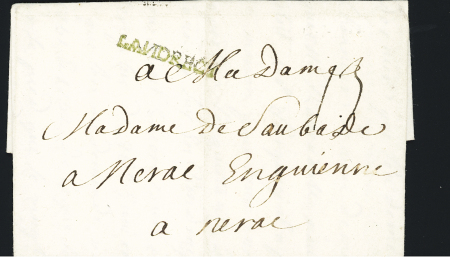 LANDRECY
a Madame
Madame de Saubade
a Nerac Enguienne
a nerac